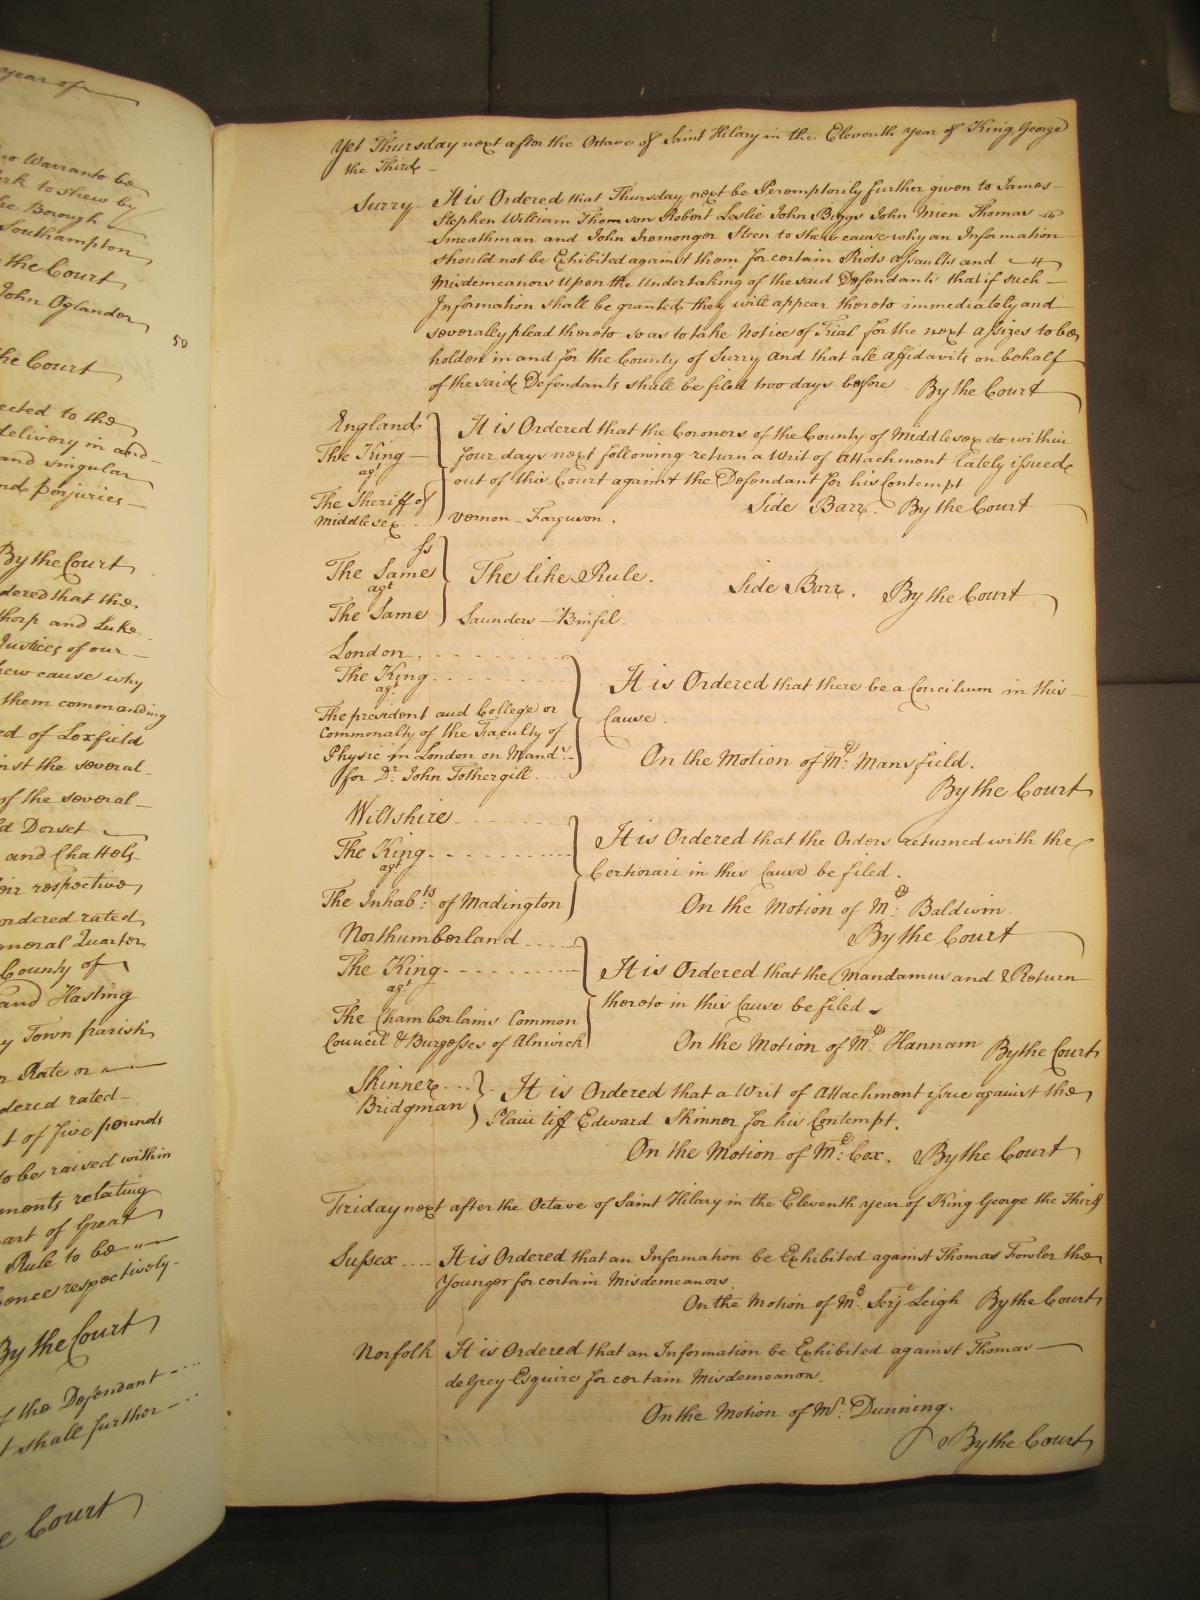 year of
Warranto be
to shew by
the Borough
Southampton
the Court
John Oglander
50
the Court
to the
delivery in and
and singular
perjuries
By the Court
dered that the
thorp and Luke
Justices of our
shew cause why
them commanding
ed of Loxfield
inst the several
of the several
Dorset
and Chattels
respective
ordered rated
General Quarter
County of
and Hasting
Town parish
Rate or
dered rated
t of five pounds
to be raised within
ments relating
part of Great
Rule to be
respectively
By the Court
of the Defendant
shall further
Court
Yet Thursday next after the Octave of Saint Hilary in the Eleventh year of King George
the Third
Surry It is Ordered that Thursday next be Peremptorily further given to James
Stephen William Thomson Robert Leslie John Biggs John Mien Thomas
Smeathman and John Iremonger Steen to shew cause why an Information
should not be Exhibited against them for certain Riots assaults and
Misdemeanors Upon the Undertaking of the said Defendants that if such
Information shall be granted they will appear thereto immediately and
severally plead thereto so as to take Notice of Trial for the next assizes to be
holden in and for the County of Surry And that all affidavits on behalf
of the said Defendants shall be filed two days before By the Court
England
The King
agt
The Sheriff of
Middlesex
It is Ordered that the Coroners of the County of Middlesex do within
four days next following return a Writ of Attachment lately issued
out of this Court against the Defendant for his Contempt
Side Barr. By the Court
Vernon - Farguson.
Ss
The Same
agt
The Same
The like Rule. Side Barr. By the Court
Saunders
London
The King
agt
The president and College or
Commonalty of the Faculty of
Physic in London on Mands
for Dr. John Fothergill
It is Ordered that there be a Concilium in this
Cause.
On the Motion of Mr. Mansfield.
By the Court
Wiltshire
The King
agt
The Inhabts. of Madington
It is Ordered that the Orders returned with the
Certiorari in this Cause be filed.
On the Motion of Mr. Baldwin
By the Court
Northumberland
The King
agt
The Chamberlains Common
Council & Burgesses of Alnwick
It is Ordered that the Mandamus and Return
thereto in this Cause be filed
On the Motion of Mr. Hannam By the Court
Skinner
Bridgman
It is Ordered that a Writ of Attachment issue against the
Plaintiff Edward Skinner for his Contempt.
On the Motion of Mr. Cox. By the Court
Friday next after the Octave of Saint Hilary in the Eleventh year of King George the Third
Sussex It is Ordered that an Information be Exhibited against Thomas Fowler the
Younger for certain Misdemeanors
On the Motion of Mr. Serjt Leigh By the Court
Norfolk It is Ordered that an Information be Exhibited against Thomas
de Grey Esquire for certain Misdemeanors.
On the Motion of Mr. Dunning.
By the Court